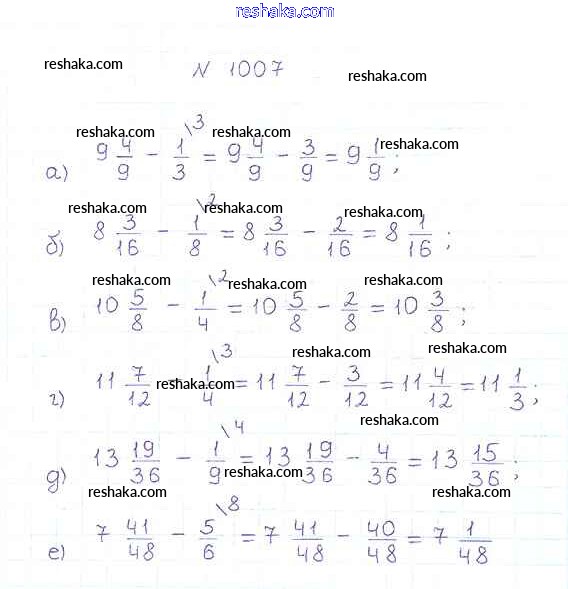 reshaka.com
reshaka.com
№ 1007
reshaka.com
reshaka.com reshaka.com reshaka.com
а) 9 4/9 - 1/3 \3 = 9 4/9 - 3/9 = 9 1/9 ;
reshaka.com reshaka.com reshaka.com
б) 8 3/16 - 1/8 \2 = 8 3/16 - 2/16 = 8 1/16 ;
reshaka.com reshaka.com reshaka.com
в) 10 5/8 - 1/4 \2 = 10 5/8 - 2/8 = 10 3/8 ;
reshaka.com reshaka.com reshaka.com
г) 11 7/12 - 1/4 \3 = 11 7/12 - 3/12 = 11 4/12 = 11 1/3 ;
reshaka.com
д) 13 19/36 - 1/9 \4 = 13 19/36 - 4/36 = 13 15/36 ;
reshaka.com
reshaka.com reshaka.com
е) 7 41/48 - 5/6 \8 = 7 41/48 - 40/48 = 7 1/48